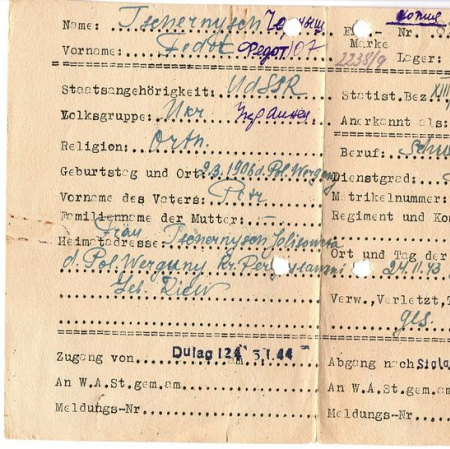 Name: Tschernysch Черныш E.K. - Nr. копие
Vorname: Fedot Федот 107 Marke 2238/9 Lager:
Staatsangehörigkeit: UdSSR Statist.Bez. VIII
Volksgruppe: Ukr. Украин Anerkannt als:
Religion: Orth.
Geburtstag und Ort: 9.3.1906 d. Pol. Werguny Beruf: Schu
Vorname des Vaters: Petr Dienstgrad:
Familienname der Mutter: — Matrikelnummer:
Regiment und Ko
Heimatadresse: Frau Tschernysch
d. Pol. Werguny Kr. Ort und Tag der
Geb. Kiew 24.11.43
Verw., Verletzt,
ges.
Zugang von Dulag 124 am 3.1.44 Abgang nach Stala
An W.A.St.gem.am An W.A.St.gem.am
Meldungs-Nr Meldungs-Nr